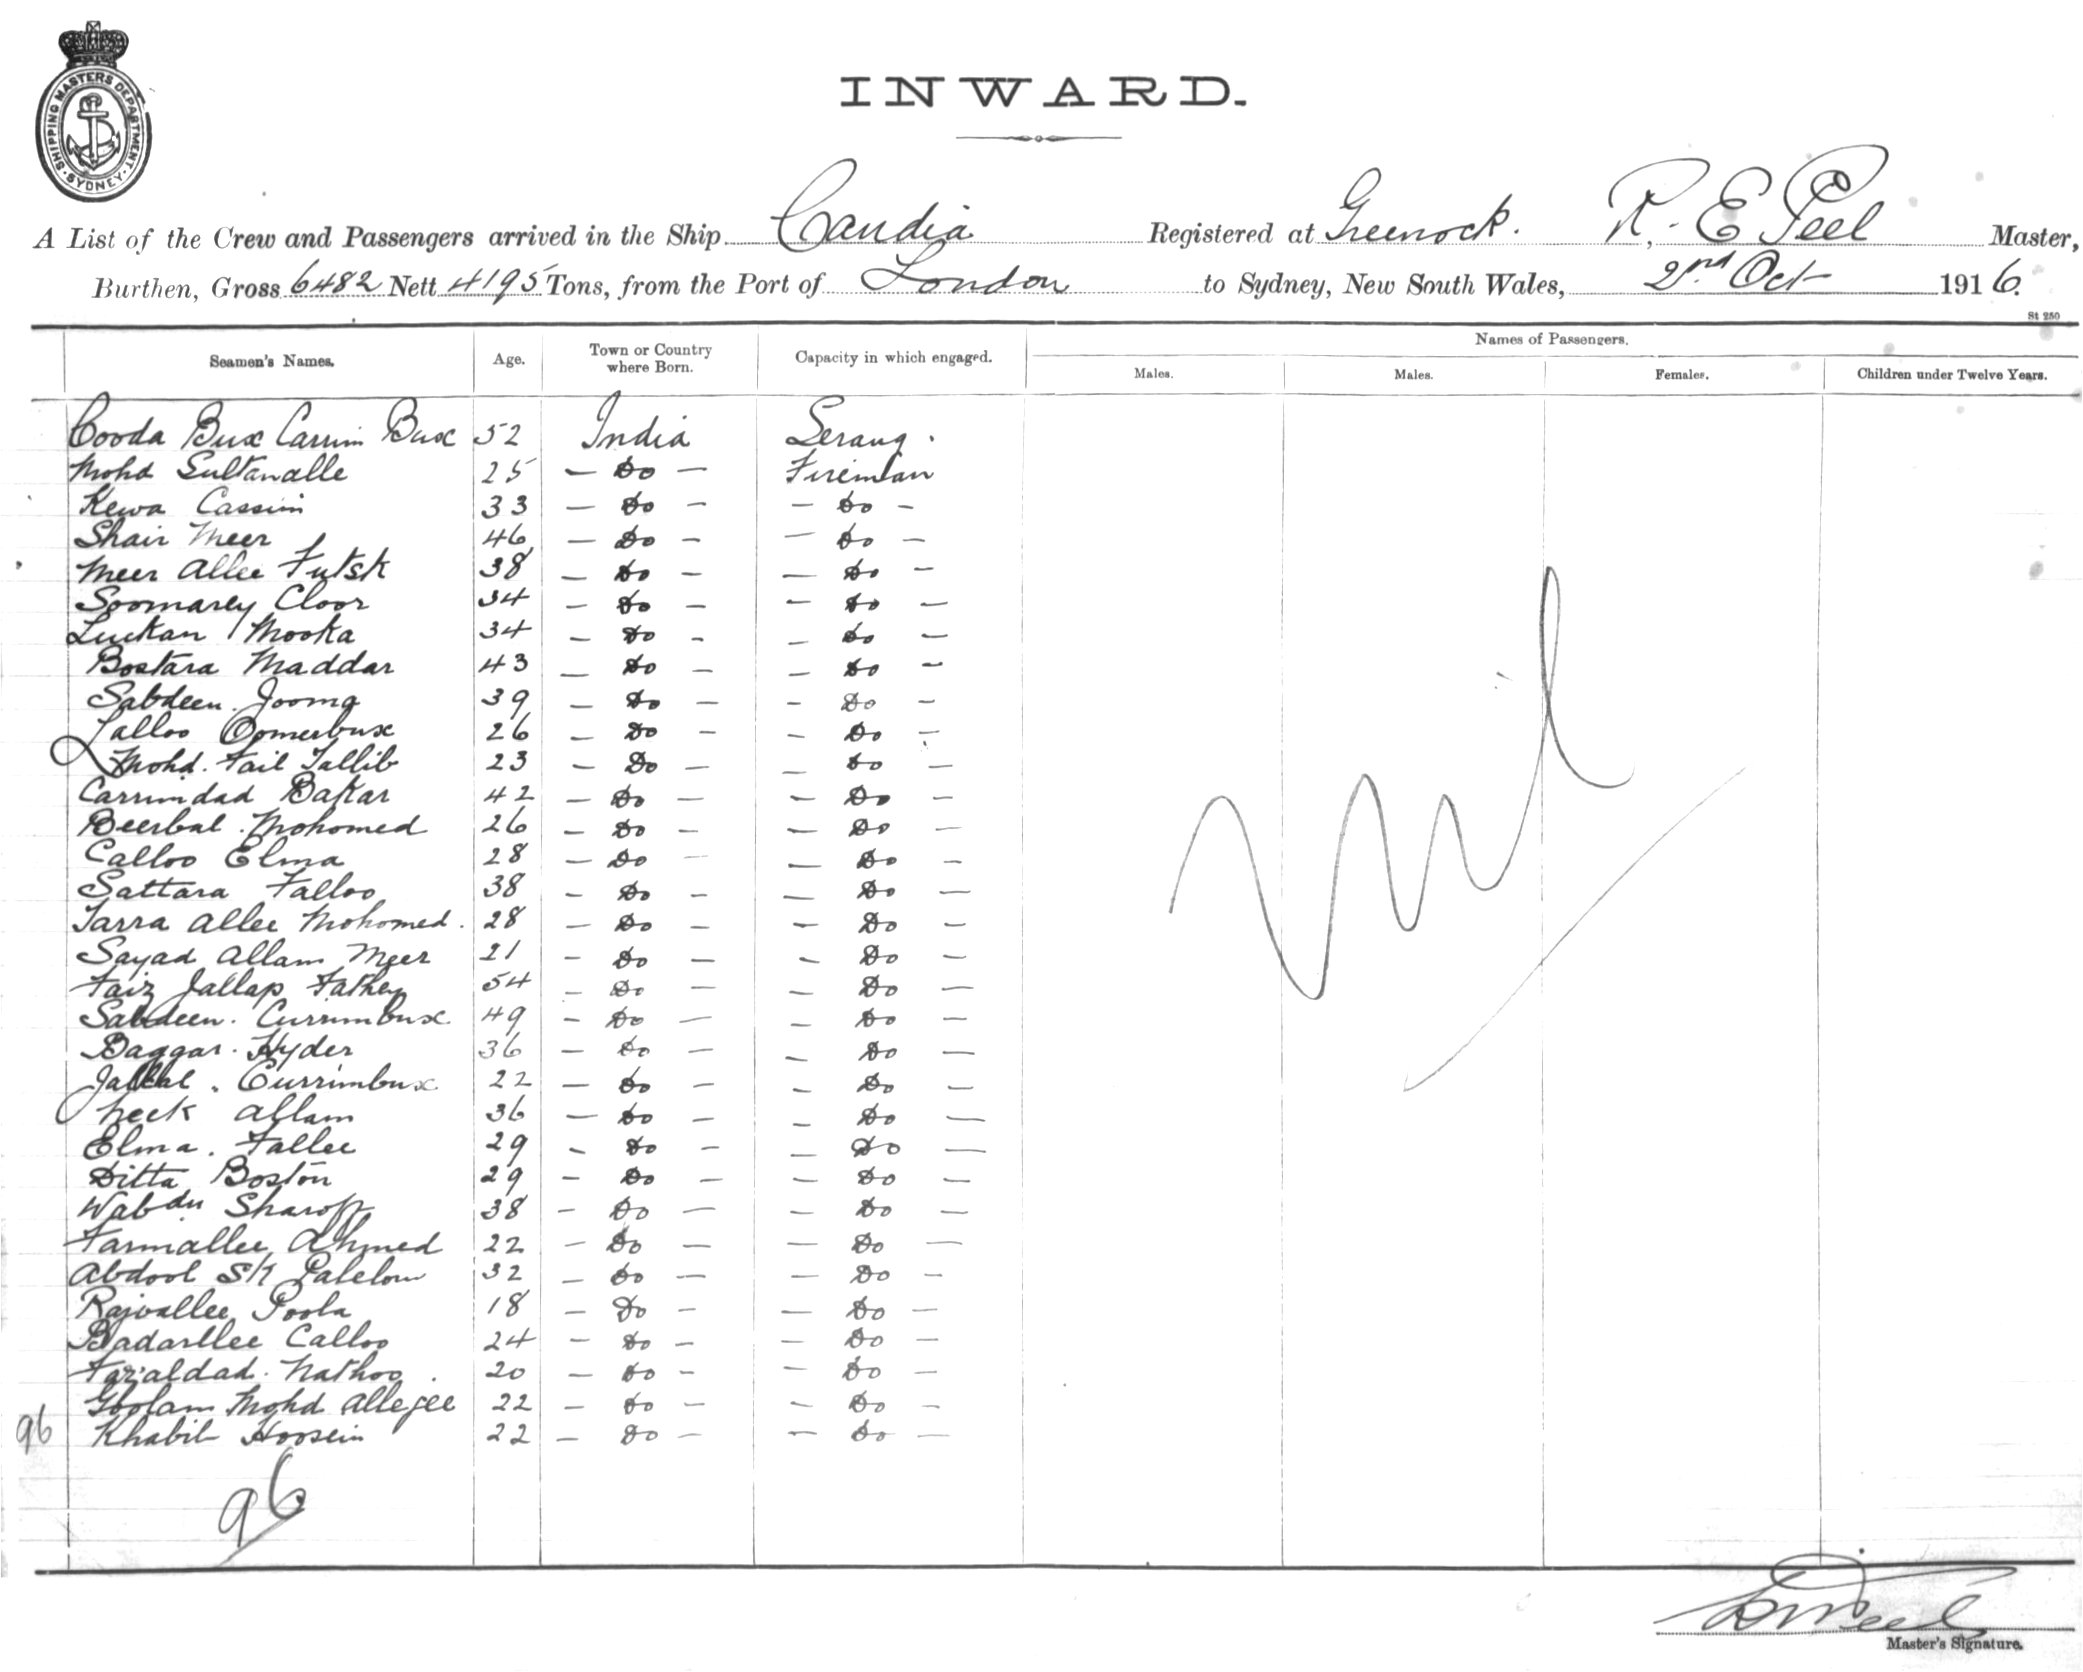 SHIPPING MASTERS DEPARTMENT. SYDNEY.
INWARD.
A List of the Crew and Passengers arrived in the Ship Candia Registered at Greenock. R. E Peel Master,
Burthen, Gross 6482 Nett 4195 Tons, from the Port of London to Sydney, New South Wales, 2nd Oct 1916.
St 250
Names of Passengers.
Seamen's Names. Age. Town or Country where Born. Capacity in which engaged. Males. Males. Females. Children under Twelve Years.
Cooda Bux Carrim Bux 52 India Serang.
Mohd Sultanalle 25 - Do - Fireman
Kewa Cassim 33 - Do - - Do -
Shair Meer 46 - Do - - Do -
Meer Allee Futsk 38 - Do - - Do -
Soomarey Cloor 34 - Do - - Do -
Luckan Mooka 34 - Do - - Do -
Bostara Maddar 43 - Do - - Do -
Sabdeen. Jooma 39 - Do - - Do -
Lalloo Oomerbux 26 - Do - - Do -
Mohd. Fail Tallib 23 - Do - - Do -
Carrimdad Bakar 42 - Do - - Do -
Beerbal. Mohomed 26 - Do - - Do -
Calloo Elma 28 - Do - - Do -
Sattara Falloo 38 - Do - - Do -
Tarra Allee Mohomed. 28 - Do - - Do -
Sayad Allam Meer 21 - Do - - Do -
Faiz Jallap Fathey 54 - Do - - Do -
Sabdeen. Currimbux. 49 - Do - - Do -
Baggar. Hyder 36 - Do - - Do -
Jallal. Currimbux 22 - Do - - Do -
Allam 36 - Do - - Do -
Elma. Fallee 29 - Do - - Do -
Ditta Boston 29 - Do - - Do -
Wabdu Sharoff 38 - Do - - Do -
Farmallee Ahmed 22 - Do - - Do -
Abdool SK Palelow 32 - Do - - Do -
Rajvallee Poola 18 - Do - - Do -
Badarllee Calloo 24 - Do - - Do -
Fazaldad. Nathoo. 20 - Do - - Do -
Gholam Mohd Allejee 22 - Do - - Do -
96 Khabil Hoosein 22 - Do - - Do -
Nil
96
R E Peel
Master's Signature.